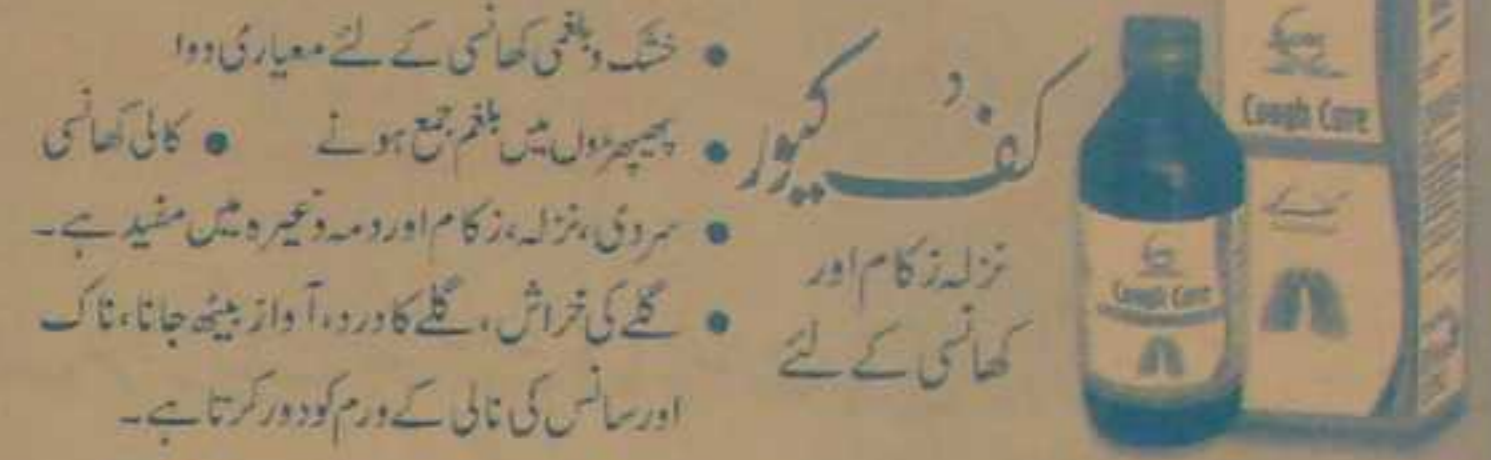 کف کیور
نزلہ زکام اور
کھانسی کے لئے
• خشک و بلغمی کھانسی کے لئے معیاری دوا
• پھیپھڑوں میں بلغم جمع ہونے • کالی کھانسی
• سردی، نزلہ، زکام اور دمہ وغیرہ میں مفید ہے۔
• گلے کی خراش، گلے کا درد، آواز بیٹھ جانا، ناک
اور سانس کی نالی کے ورم کو دور کرتا ہے۔
Cough Cure
Cough Cure